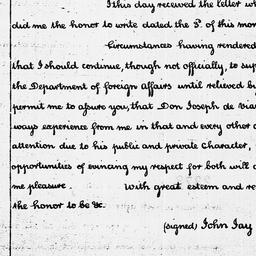 I this day received the letter
did me the honor to write dated the 5th of this mon
Circumstances having rendered
that I should continue, though not officially, to sup
the Department of foreign Affairs until relieved by
permit me to assure you, that Don Joseph de Via
ways experience from me in that and every other
attention due to his public and private Character,
opportunities of evincing my respect for both will
me pleasure. With great esteem and re
the honor to be &c.
(signed) John Jay